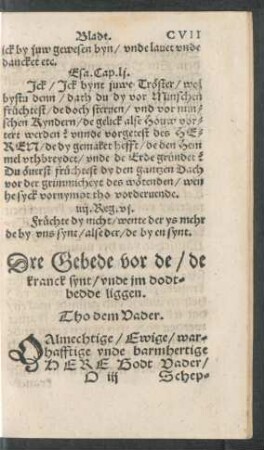 Bladt. CVII
ick by juw gewesen byn / vnde lauet vnde
dancket etc.
Esa. Cap. lj.
Ick / Ick byns juwe Tröster / wol
bystu denn / dath du dy vor Minschen
früchtest / de doch sterven / vnd vor min-
schen Kyndern / de gelick alse Houw vor-
tert werden? vnnde vorgetest des HE-
REN / de dy gemaket hefft / de den Hem
mel vthbreydet / vnde de Erde gründet?
Du öuerst früchtest dy den gantzen Dach
vor der grimmicheyt des wötenden / wen
he syck vornympt tho vorderuende.
iiij. Reg. vj.
Früchte dy nicht / wente der ys mehr
de by vns synt / alse der / de by en synt.
Dre Gebede vor de / de
kranck synt / vnde im dodt-
bedde liggen.
Tho dem Vader.
O Almechtige / Ewige / war-
hafftige vnde barmhertige
HERE Godt Vader /
O iij Schep-